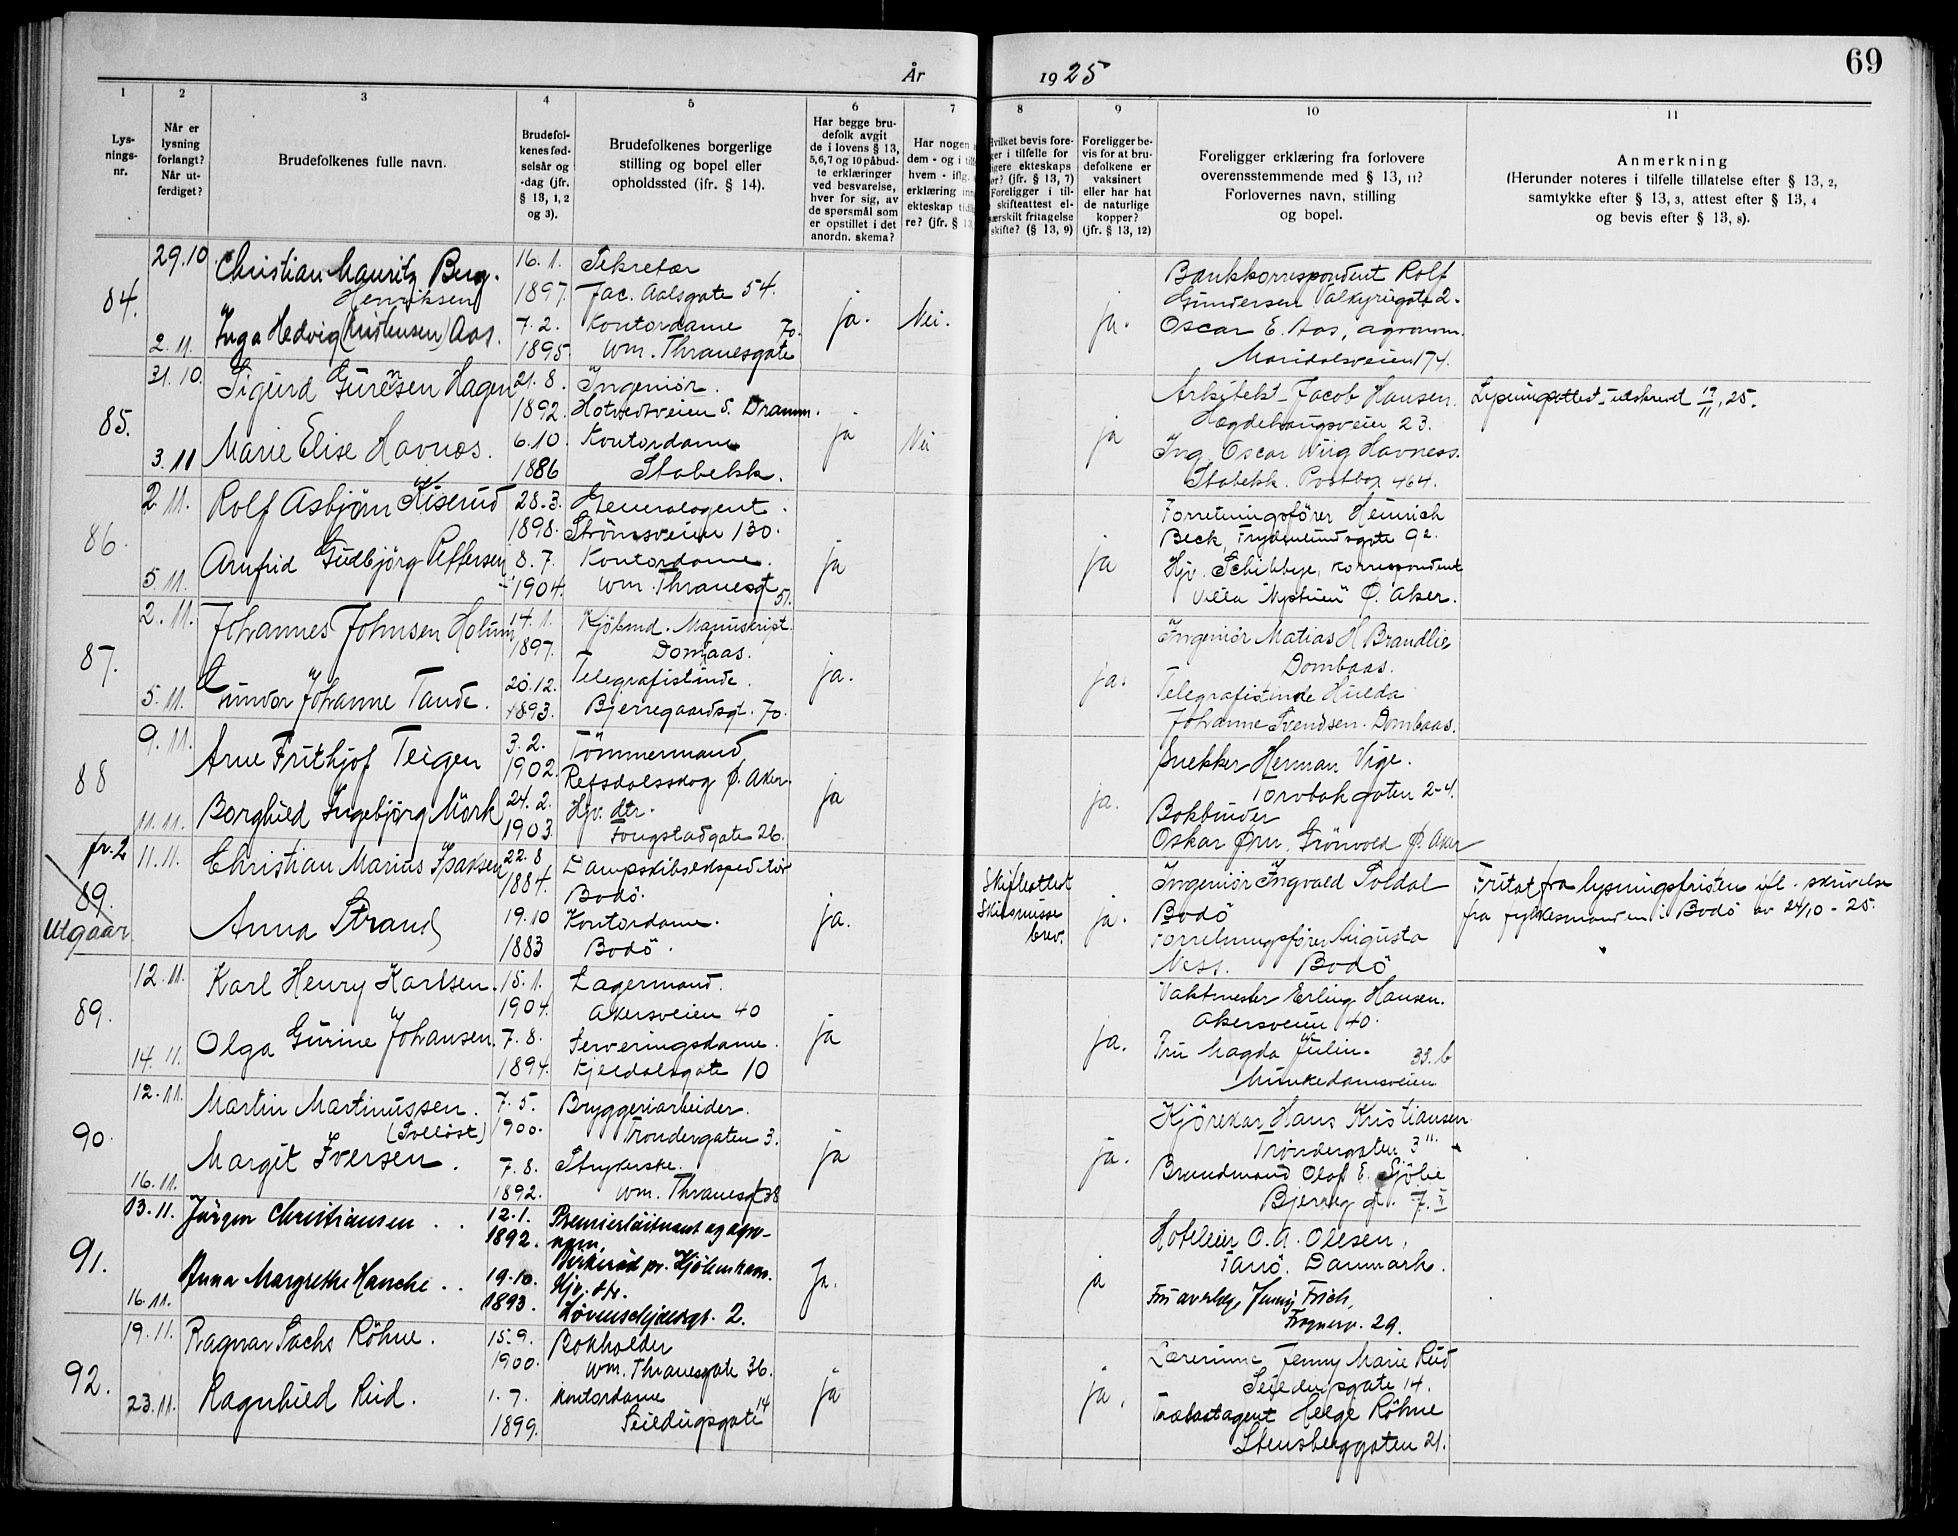 År 1925
69
1
Lys-
nings-
nr.
2
Når er
lysning
forlangt?
Når ut-
ferdiget?
3
Brudefolkenes fulle navn.
4
Brudefol-
kenes fød-
selsår og
-dag (jfr.
§ 13, 1, 2
og 3).
5
Brudefolkenes borgerlige
stilling og bopel eller
opholdssted (ifr. § 14).
6
Har begge bru-
defolk avgit
de i lovens § 13,
5,6,7 og 10 påbud-
te erklæringer
ved besvarelse,
hver for sig, av
de spørsmål som
er opstillet i det
anordn. skema?
7
Har nogen
dem - og i
hvem - iflg.
erklæring
ekteskap
re? (jfr. §
8
Hvilket bevis fore-
i tilfelle for
ekteskaps
(jfr. § 13, 7)
Foreligger i til-
skifteattest el-
særskilt fritagelse
skifte? (§ 13, 9)
9
Foreligger be-
vis for at bru-
defolkene er
vaksinert
eller har hat
de naturlige
kopper?
(jfr. § 13, 12)
10
Foreligger erklæring fra forlovere
overensstemmende med § 13, 11?
Forlovernes navn, stilling
og bopel.
11
Anmerkning
(Herunder noteres i tilfelle tillatelse efter § 13, 2,
samtykke efter § 13, 3, attest efter § 13, 4
og bevis efter § 13, 8).
84.
29.10.
2.11.
Christian Mauritz Berg.
Henriksen
Inga Hedvig (Kristensen) Aas.
16.1.
1897.
7.2.
1895.
Sekretær
Jac. Aalsgate 54.
Kontordame 70.
Wm. Thranesgate
ja.
Nei.
ja.
Bankkorrespondent Rolf
Gundersen Valkyriegata 2.
Oscar E. Aas, agronom.
Maridalsveien 174.
85.
31.10.
3.11
Sigurd Gurensen Hagen
Marie Elise Havnos.
21.8.
1892.
6.10.
1886
Ingeniør.
Hotvedtveien 5. Dramm.
Kontordame
Stabekk.
ja
Nei
ja
Arkitekt Jacob Hansen.
Hægdehaugsveien 23.
Ing. Oscar Wiig Havness.
Stabekk. Postbox 464.
Lysningsattest utskrevet 17/11, 25.
86.
2.11.
5.11.
Rolf Asbjørn Kiserud
Arnfrid Gudbjörg Pettersen
28.3.
1898.
8.7.
1904.
Generalagent.
Strømsveien 130.
Kontordame.
Wm. Thranesgt 51.
ja
ja
Forretningsfører Heinrich
Beck, Frydenlundsgate 92.
Hjv. Schibbye, korrespondent
Villa Ø. Aker.
87.
2.11.
5.11.
Johannes Johnsen Holum
Gunvor Johanne Tande.
14.1.
1897.
20.12.
1893.
Kjöbmd.
Domaas.
Telegrafistinde.
Bjerregaardsgt. 70.
ja.
ja.
Ingeniör Matias H Brandlie
Dombaas.
Telegrafistinde Hulda
Johanne Svendsen. Dombaas.
88
9.11.
11.11.
Arne Frithjof Teigen
Borghild Ingebjörg Mörk
3.2.
1902.
24.2.
1903.
Tömmermand
Refsdalsskog Ø. Aker.
Hjv. dtr.
Fougstadgate 26.
ja
ja.
Snekker Herman Vige.
Torvbakgaten 2-4.
Bokbinder
Oskar Ørn, Grönvold Ø. Aker
fr.2
89.
Utgaar
11.11.
Christian Marius Isaksen
Anna Strand
22.8
1884.
19.10
1883
Dampskibsekspeditör
Bodö.
Kontordame.
Bodö.
ja.
Skifteattest
Skilsmisse
brev.
ja.
Ingeniör Ingvald Soldal
Bodö
Forretningsfører Augusta
Ness. Bodö
Fritat fra lysningsfristen ifl. skrivelse
fra fylkesmanden i Bodö av 24/10 - 25.
89.
12.11.
14.11.
Karl Henry Karlsen.
Olga Gurine Johansen.
15.1.
1904.
7.8.
1894.
Lagermand.
Akersveien 40
Serveringsdame.
Kjeldalsgate 10
ja
ja.
Vaktmester Erling Hansen.
Akersveien 40.
Fru Magda Julin. 35.b
Munkedamsveien
90.
12.11.
16.11.
Martin Martinussen.
(Sollöst)
Margit Iversen.
7.5.
1900.
7.8.
1892.
Bryggeriarbeider.
Trondergaten 3.
Strykerske.
Wm. Thranesgt 38
ja
ja.
Kjörekar Hans Kristiansen
Tröndergaten 3
Brundmand Olof E. Sjöbe
Bjerreg gt. 7. II
91.
13.11.
16.11.
Jürgen Christiansen..
Anna Margrethe Hanche..
12.1.
1892.
19.10.
1893.
Premierløitnant og agro-
nom.
Birkeröd pr. Kjøbenhavn.
Hjv. dtr.
Løvenskjoldsgt. 2.
Ja.
ja
Hoteleier O. A. Olesen,
Fanö. Danmark.
Fru overlæge Jenny Frich,
Frognerv. 29.
92.
19.11.
23.11.
Ragnar Sachs Röhne.
Ragnhild Rud.
15.9.
1900.
1.7.
1899.
Bokholder
Wm. Thranesgate 36.
Kontordame
Seildugsgate 14
ja
ja.
Lærerinne Jenny Marie Rud
Seildugsgate 14.
Trælastagent Helge Röhne
Stensberggaten 21.